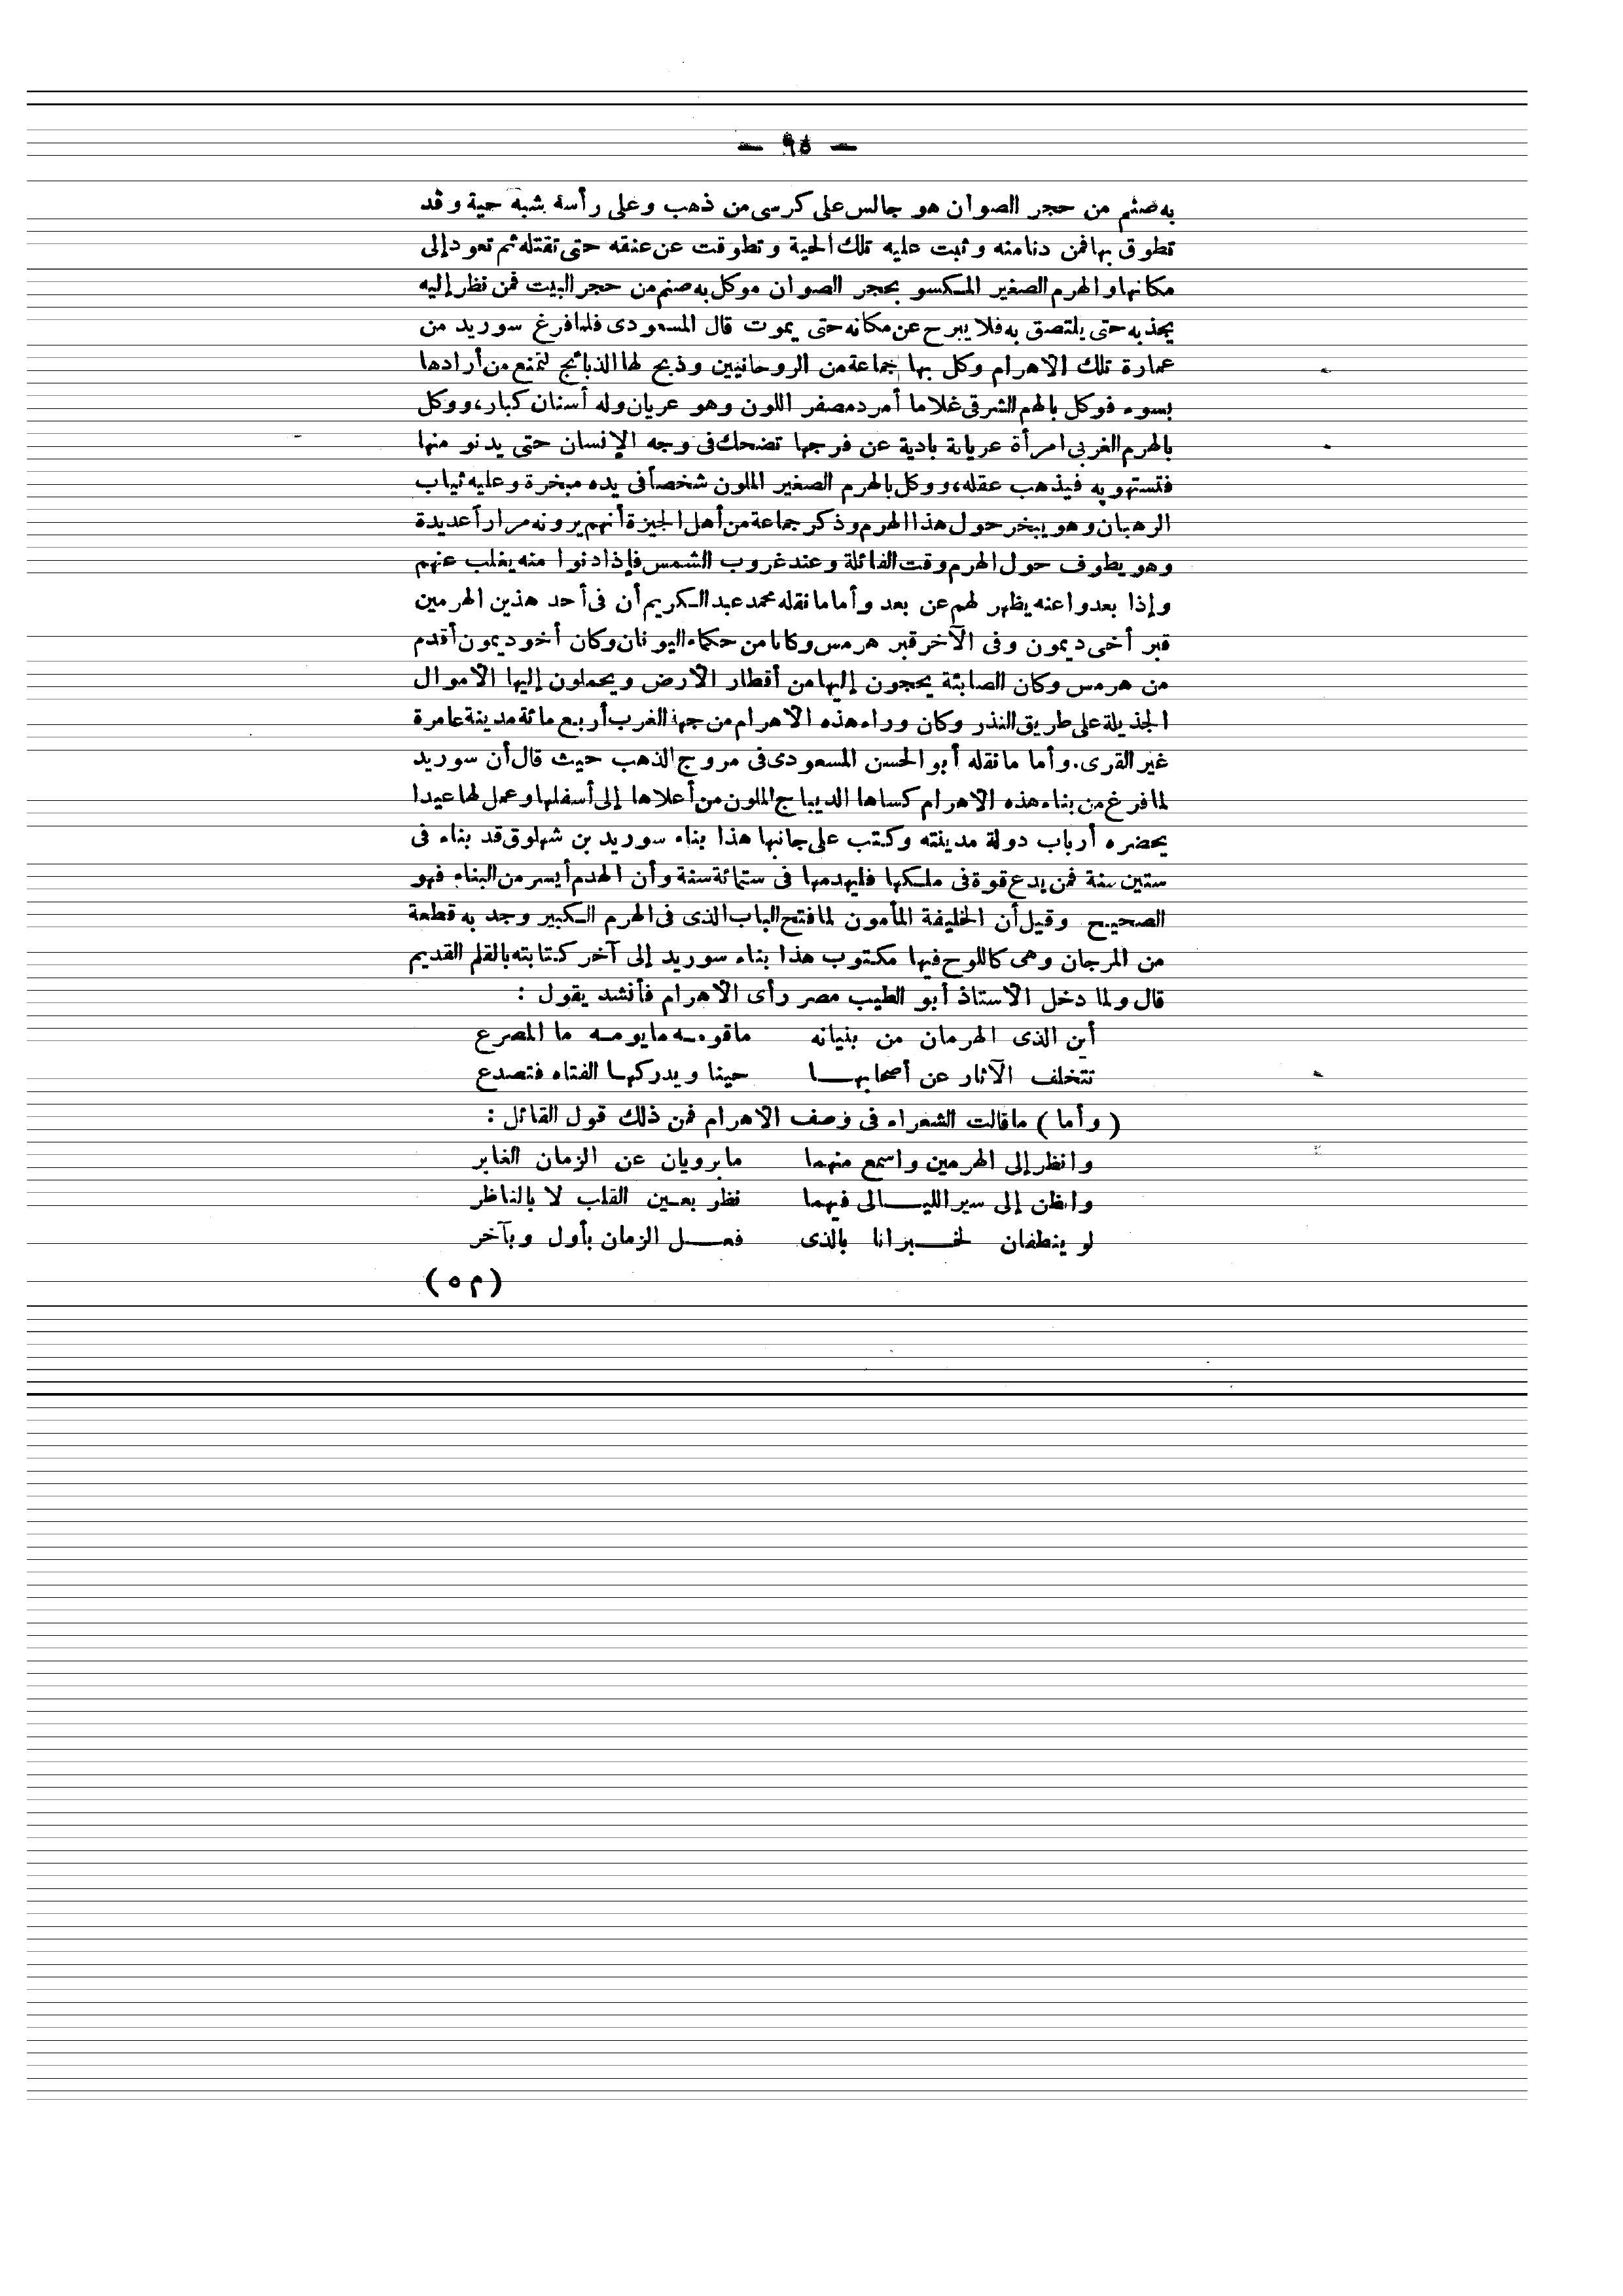 — ٩٥ —
به صنم من حجر الصوان هو جالس على كرسى من ذهب وعلى رأسة شبه حية وقد
تطوق بها فمن دنا منه وثبت عليه تلك الحية وتطوقت عن عنقه حتى تقتله ثم تعود إلى
مكانها والهرم الصغير المكسو بحجر الصوان موكل به صنم من حجر البيت فمن نظر إليه
يجذبه حتى يلتصق به فلا يبرح عن مكانه حتى يموت قال المسعودى فلما فرغ سوريد من
عمارة تلك الاهرام وكل بها جماعة من الروحانيين وذبح لها الذبائح لتمنع من أرادها
بسوء فوكل بالهم الشرقى غلاما أمرد مصفر اللون وهو عريان وله أسنان كبار، ووكل
بالهرم الغربى امرأة عريانة بادية عن فرجها تضحك فى وجه الإنسان حتى يدنو منها
فتستهويه فيذهب عقله، ووكل بالهرم الصغير الملون شخصاً فى يده مبخرة وعليه ثياب
الرهبان وهو يبخر حول هذا الهرم وذكر جماعة من أهل الجيزة أنهم يرونه مراراً عديدة
وهو يطوف حول الهرم وقت القائلة وعند غروب الشمس فإذا دنوا منه يغلب عنهم
وإذا بعدوا عنه يظهر لهم عن بعد وأما ما نقله محمد عبد الكريم أن فى أحد هذين الهرمين
قبر أخى ديمون وفى الآخر قبر هرمس وكانا من حكماء اليونان وكان أخو ديمون أقدم
من هرمس وكان الصابئة يحجون إليها من أقطار الارض ويحملون إليها الاموال
الجذيلة على طريق النذر وكان وراء هذه الاهرام من جهة الغرب أربع مائة مدينة عامرة
غير القرى. وأما ما نقله أبو الحسن المسعودى فى مروج الذهب حيث قال أن سوريد
لما فرغ من بناء هذه الاهرام كساها الديباج الملون من أعلاها إلى أسفلها وعمل لها عيدا
يحضره أرباب دولة مدينته وكتب على جانبها هذا بناء سوريد بن شهلوق قد بناء فى
ستين سنة فمن يدع قوة فى ملكها فليهدمها فى ستمائة سنة وأن الهدم أيسر من البناء فهو
الصحيح وقيل أن الخليفة المأمون لما فتح الباب الذى فى الهرم الكبير وجد به قطعة
من المرجان وهى كاللوح فيها مكتوب هذا بناء سوريد إلى آخر كتابته بالقلم القديم
قال ولما دخل الاستاذ أبو الطيب مصر رأى الاهرام فأنشد يقول :
أين الذى الهرمان من بنيانه ما قومه ما يومه ما المصرع
تتخلف الآثار عن أصحابها حينا ويدركها الفناء فتصدع
( وأما ) ما قالت الشعراء فى وصف الاهرام فمن ذلك قول القائل :
وانظر إلى الهرمين واسمع منهما ما يرويان عن الزمان الغابر
وانظن إلى سير الليالى فيهما نظر بعين القلب لا بالناظر
لو ينطقان لخبرانا بالذى فعل الزمان بأول وبآخر
( م ٥ )